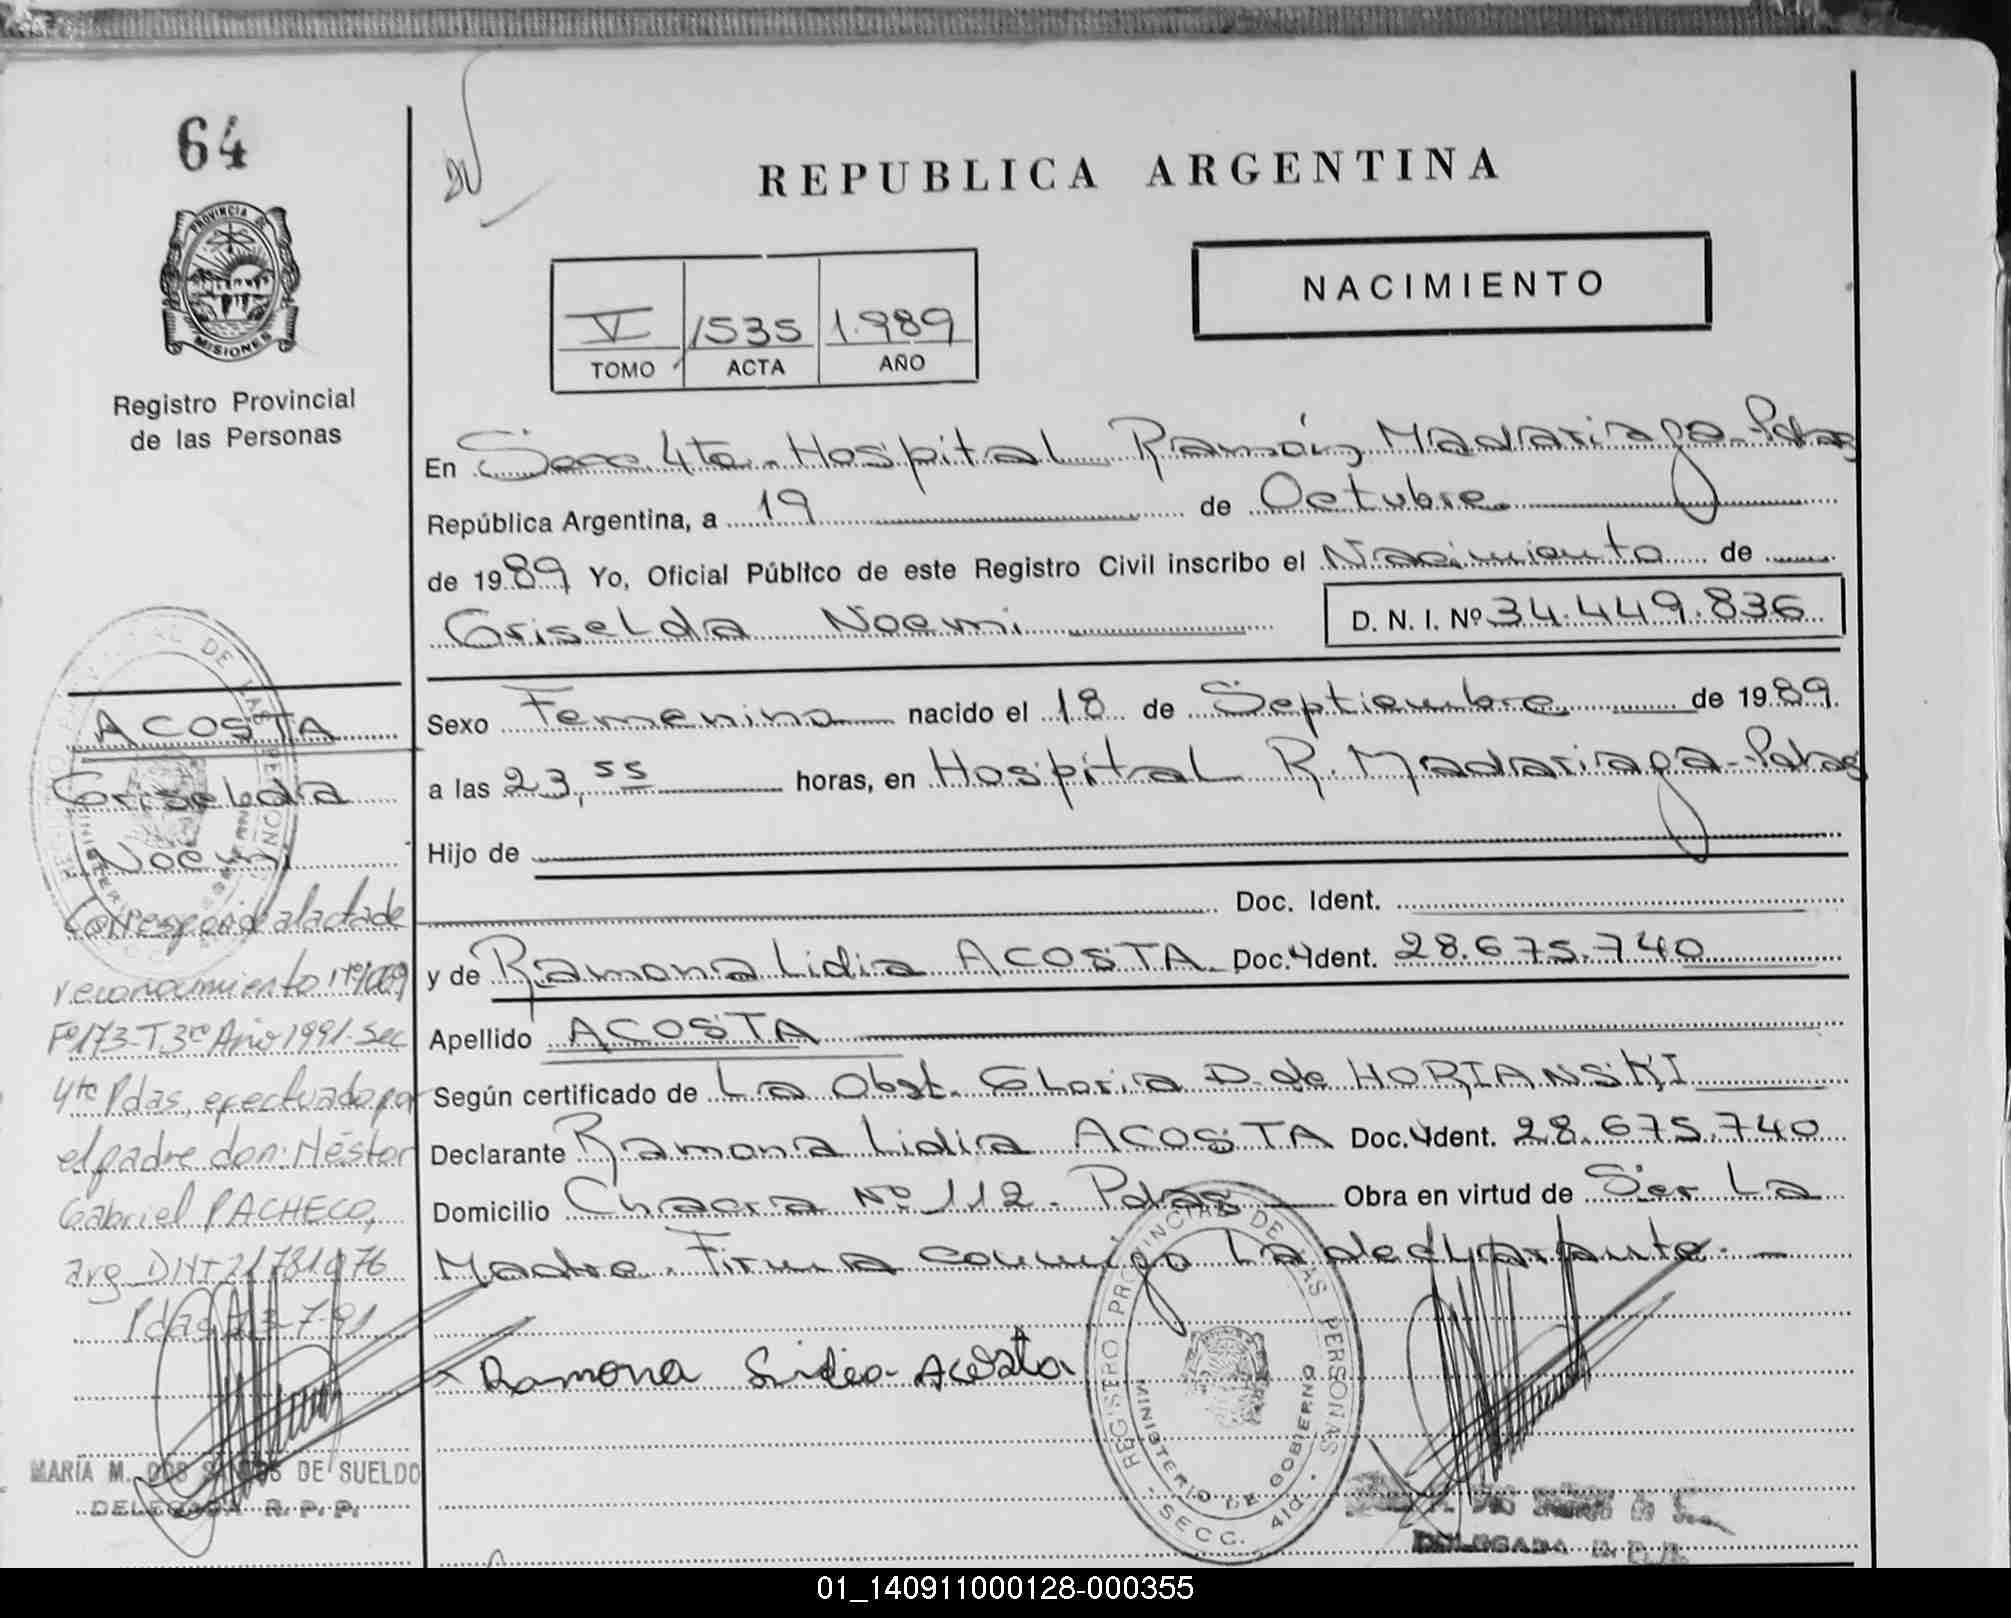 64
PROVINCIA DE
MISIONES
Registro Provincial
de las Personas
REPUBLICA ARGENTINA
NACIMIENTO
V 1535 1.989
TOMO ACTA AÑO
En Secc. 4ta. Hospital Ramón Madariaga - Pdas
República Argentina, a 19 de Octubre
de 1989 Yo, Oficial Público de este Registro Civil inscribo el Nacimiento de
Griselda Noemi D. N. I. Nº 34.449.836
Sexo Femenino nacido el 18 de Septiembre de 1989.
a las 23,55 horas, en Hospital R. Madariaga - Pdas
Hijo de
Doc. Ident.
y de Ramona Lidia ACOSTA Doc. Ident. 28.675.740
Apellido ACOSTA
Según certificado de La Obst. Gloria D. de HORIANSKI
Declarante Ramona Lidia ACOSTA Doc. Ident. 28.675.740
Domicilio Chacra Nº 112 - Pdas Obra en virtud de Ser La
Madre. Firma conmigo La declarante. -
Ramona Lidia Acosta
REGISTRO PROVINCIAL DE LAS PERSONAS
MINISTERIO DE GOBIERNO
SECC. 4ta.
DELEGADA R. P. P.
ACOSTA
Griselda
Noemi
Corresponde al acta de
reconocimiento Nº 1069
Fº 173 - T. 3ro Año 1991 - Sec
4ta Pdas, efectuado por
el padre don: Néstor
Gabriel PACHECO,
arg. DNI 21781076
Pdas 7-91
MARÍA M. DOS SANTOS DE SUELDO
DELEGADA R. P. P.
01_140911000128-000355